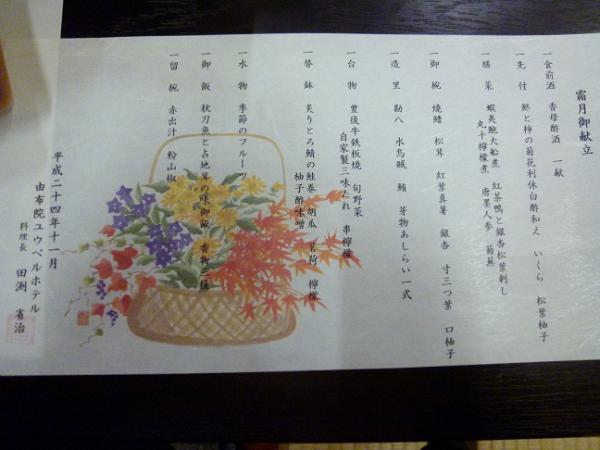 霜月御献立
一食前酒 香母酢酒 一献
一先付 鮗と柿の菊花利休白酢和え いくら 松葉柚子
一膳菜 蝦夷鮑大船煮 紅茶鴨と銀杏松葉刺し
丸十檸檬煮 唐墨人参 菊蕪
一御椀 焼鱧 松茸 紅葉真薯 銀杏 寸三つ葉 口柚子
一造里 勘八 水烏賊 鮪 芽物あしらい一式
一台物 豊後牛鉄板焼 旬野菜 串檸檬
自家製三味たれ
一替鉢 炙りとろ鯖の鮭巻 胡瓜 茗荷 檸檬
柚子酢味噌
一水物 季節のフルーツ
一御飯 秋刀魚と占地茸の味御飯 香物三種
一留椀 赤出汁 粉山椒
平成二十四年十一月
由布院ユウベルホテル
料理長 田渕 省治